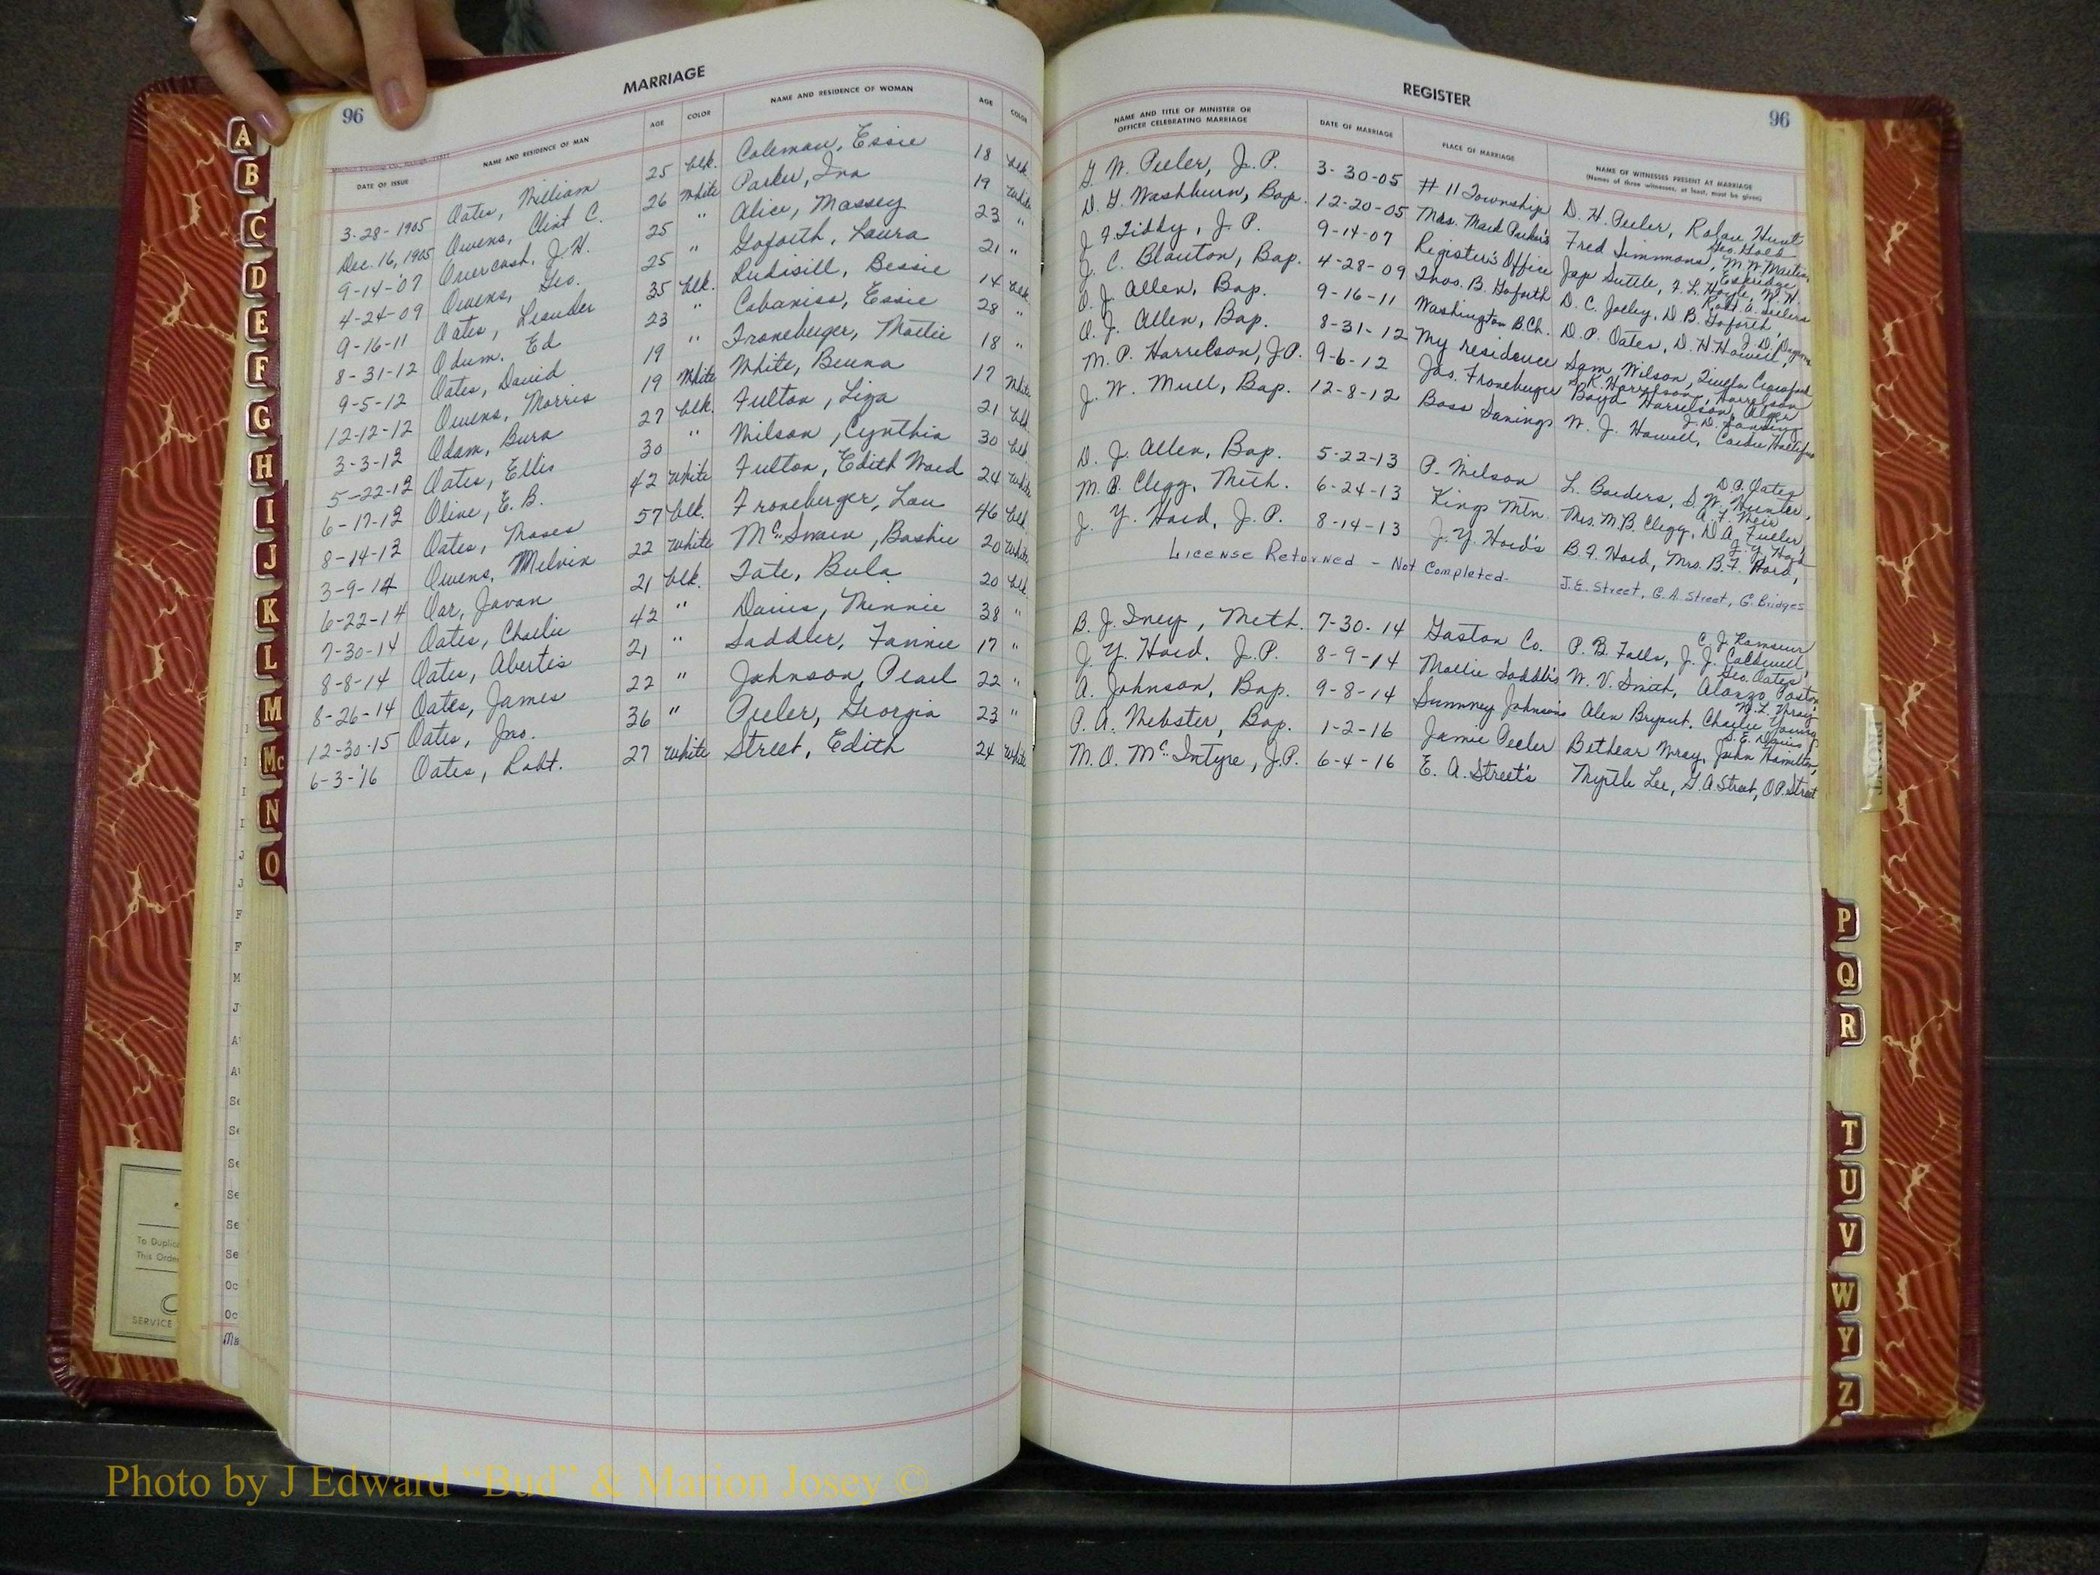 96
MARRIAGE
DATE OF ISSUE NAME AND RESIDENCE OF MAN AGE COLOR NAME AND RESIDENCE OF WOMAN AGE COLOR
3-28-1905 Oates, William 25 blk. Coleman, Essie 18 blk.
Dec. 16, 1905 Owens, Clint C. 26 White Parker, Ina 19 White
9-14-'07 Overcash, J.H. 25 " Alice, Massey 23 "
4-24-09 Owens, Geo. 25 " Goforth, Laura 21 "
9-16-11 Oates, Leander 35 blk. Rudisill, Bessie 14 blk.
8-31-12 Odum, Ed 23 " Cabaniss, Essie 28 "
9-5-12 Oates, David 19 " Froneburger, Mattie 18 "
12-12-12 Owens, Morris 19 White White, Beuna 17 White
3-3-13 Odam, Bura 27 blk. Fulton, Liza 21 blk
5-22-13 Oates, Ellis 30 " Wilson, Cynthia 30 blk
6-17-13 Oline, E. B. 42 White Fulton, Edith Ward 24 White
8-14-13 Oates, Moses 57 blk. Froneberger, Lou 46 blk
3-9-14 Owens, Melvin 22 White McSwain, Bashie 20 White
6-22-14 Oar, Javan 21 blk. Tate, Bula 20 blk
7-30-14 Oates, Charlie 42 " Davis, Minnie 38 "
8-8-14 Oates, Abertis 21 " Saddler, Fannie 17 "
8-26-14 Oates, James 22 " Johnson, Pearl 22 "
12-30-15 Oates, Jno. 36 " Peeler, Georgia 23 "
6-3-'16 Oates, Robt. 27 White Street, Edith 24 White
REGISTER
96
NAME AND TITLE OF MINISTER OR
OFFICER CELEBRATING MARRIAGE
DATE OF MARRIAGE PLACE OF MARRIAGE NAME OF WITNESSES PRESENT AT MARRIAGE
(Names of three witnesses, at least, must be given)
G. W. Peeler, J. P. 3-30-05 #11 Township D. H. Peeler, Rolan Hunt
D. G. Washburn, Bap. 12-20-05 Mrs. Mack Parker's Fred Simmons, M. W. Martin,
J. F. Tiddy, J. P. 9-14-07 Register's Office Jap Suttle, F. L. Hoyle, W. H. Eskridge
J. C. Blanton, Bap. 4-28-09 Thos. B. Goforth D. C. Jolley, D. B. Goforth
O. J. Allen, Bap. 9-16-11 Washington B. Ch. D. P. Oates, D. H. Howell,
O. J. Allen, Bap. 8-31-12 My residence Sam Wilson,
M. P. Harrelson, J.P. 9-6-12 Jas. Froneburger S. K. Harrelson, Boyd Harrelson,
J. W. Mull, Bap. 12-8-12 W. J. Howell,
D. J. Allen, Bap. 5-22-13 P. Wilson L. Borders, D. P. Oates
M. B. Clegg, Meth. 6-24-13 Kings Mtn. Mrs. M. B. Clegg, D. A. Fuller,
J. Y. Hord, J. P. 8-14-13 J. Y. Hord's B. F. Hord, Mrs. B. F. Hord,
License Returned - Not Completed.
J. E. Street, C. A. Street, G. Bridges
B. J. Ivey, Meth. 7-30-14 Gaston Co. P. B. Falls, J. J. Caldwell, C. J. Ramseur
J. Y. Hord, J. P. 8-9-14 Mollie Saddler's W. V. Smith, Alonzo Poston, Geo. Oates
A. Johnson, Bap. 9-8-14 Summey Johnson's Alen Bryant, Charlie Young
P. A. Webster, Bap. 1-2-16 Jamie Peeler Bethear Wray, John Hamilton, S. E. Davis
M. O. McIntyre, J.P. 6-4-16 E. A. Street's Myrtle Lee, G. A. Street, O. P. Street
A
B
C
D
E
F
G
H
I
J
K
L
M
Mc
N
O
P
Q
R
T
U
V
W
Y
Z
To Duplic
This Order
SERVICE
Photo by J Edward “Bud” & Marion Josey ©